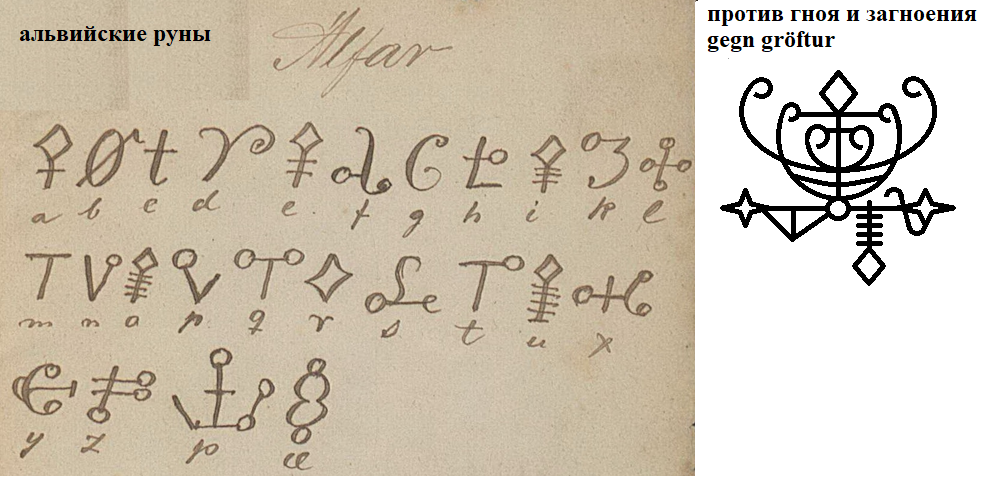 альвийские руны
Alfar
a b c d e. f g h i k l
m n o p q r s t u x
y z þ æ
против гноя и загноения
gegn gröftur